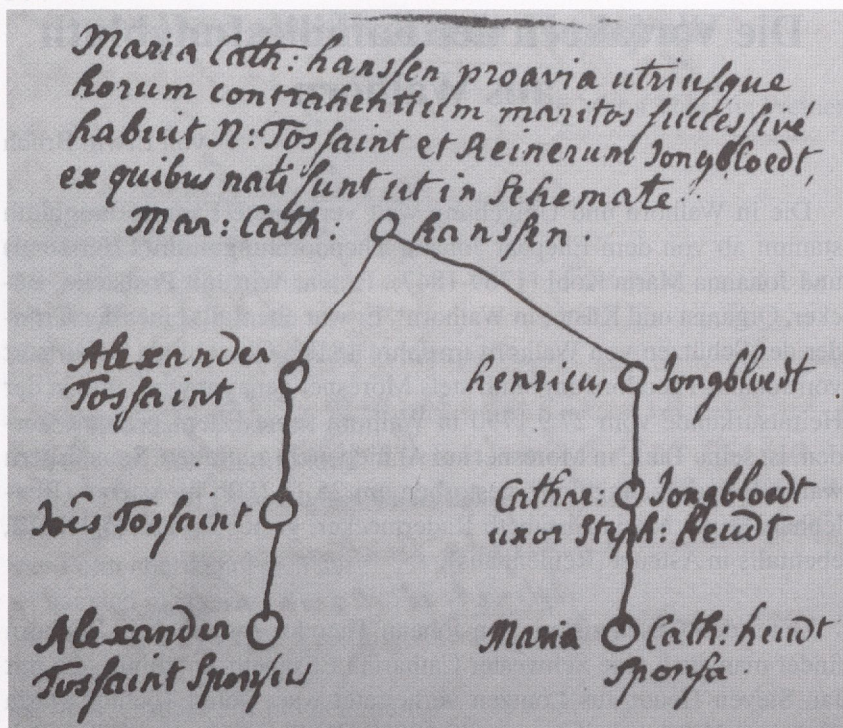 Maria Cath: hanssen proavia utriusque
horum contrahentium maritos successivè
habuit N: Tossaint et Reinerum Jongbloedt,
ex quibus nati sunt ut in Schemate.
Mar: Cath: hanssen.
Alexander
Tossaint
henricus Jongbloedt
Joês Tossaint
Cathar: Jongbloedt
uxor Steph: Heudt
Alexander
Tossaint Sponsus
Maria Cath: heudt
Sponsa.